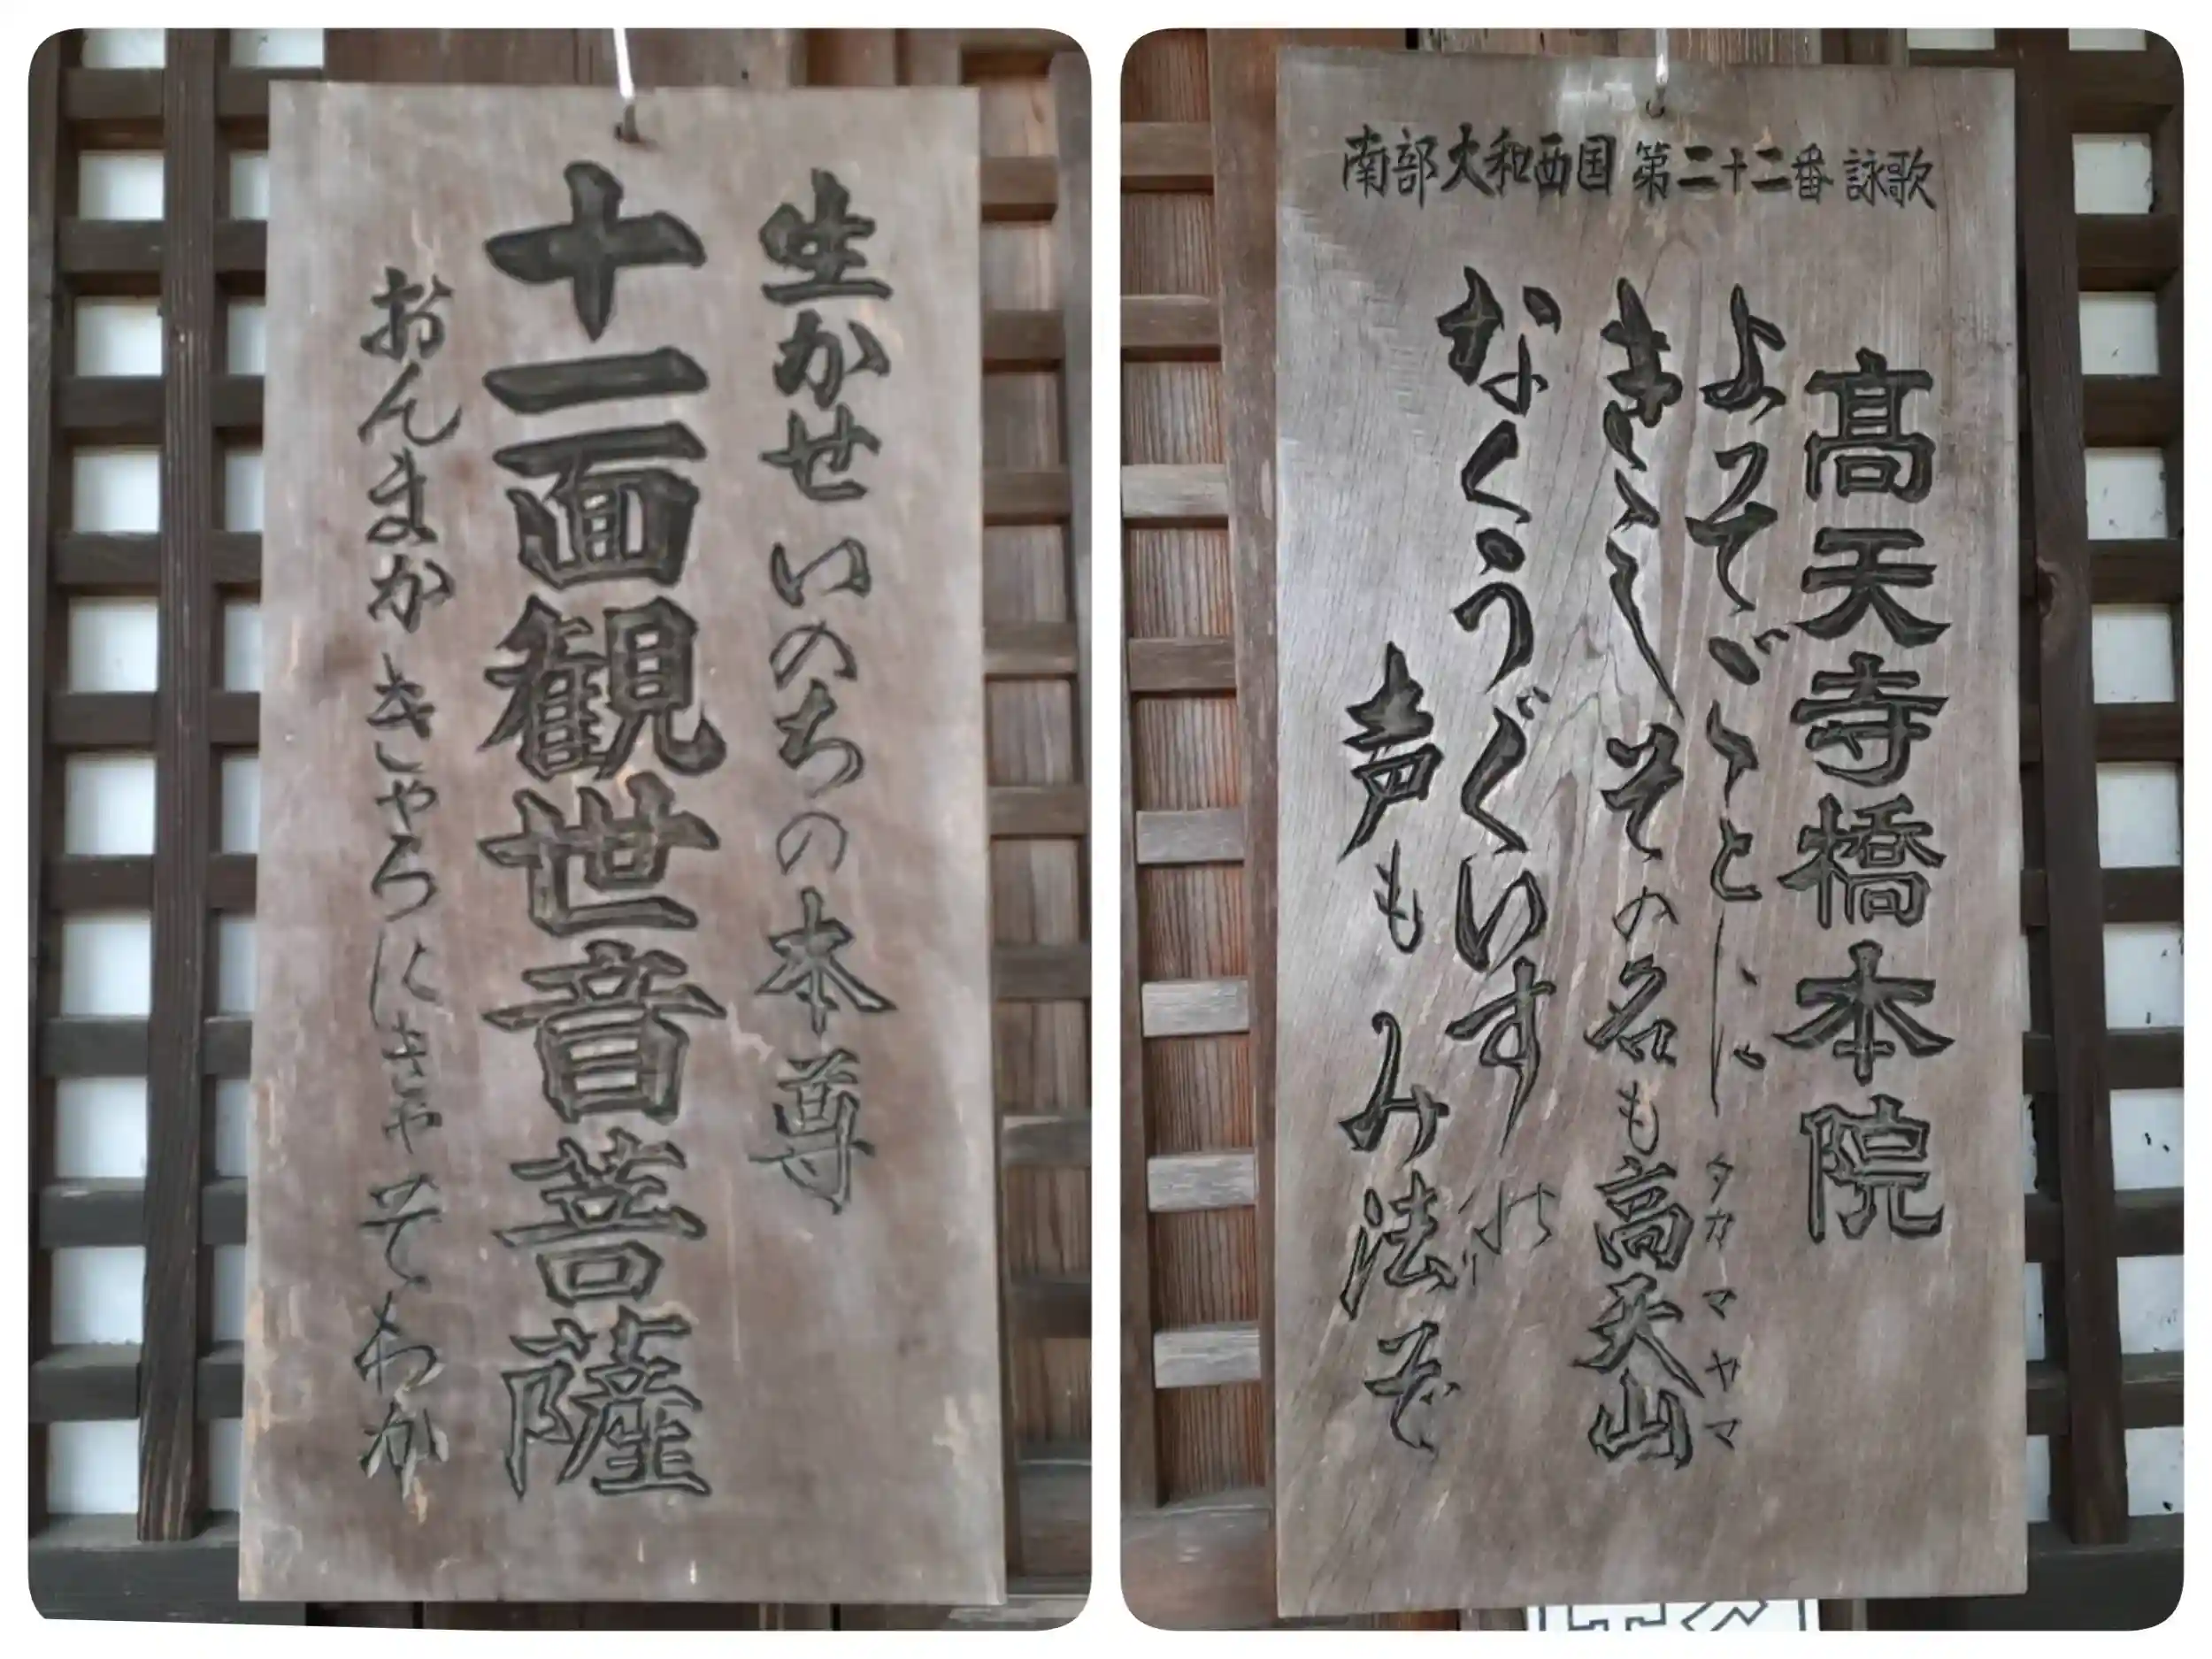 生かせいのちの本尊
十一面観世音菩薩
おんまか きゃろにきゃ そわか
南部大和西国 第二十二番 詠歌
髙天寺橋本院
よつてごゝとに
きゝし その名も高天山
タカマヤマ
なくうぐいすの
声も み法ぞ